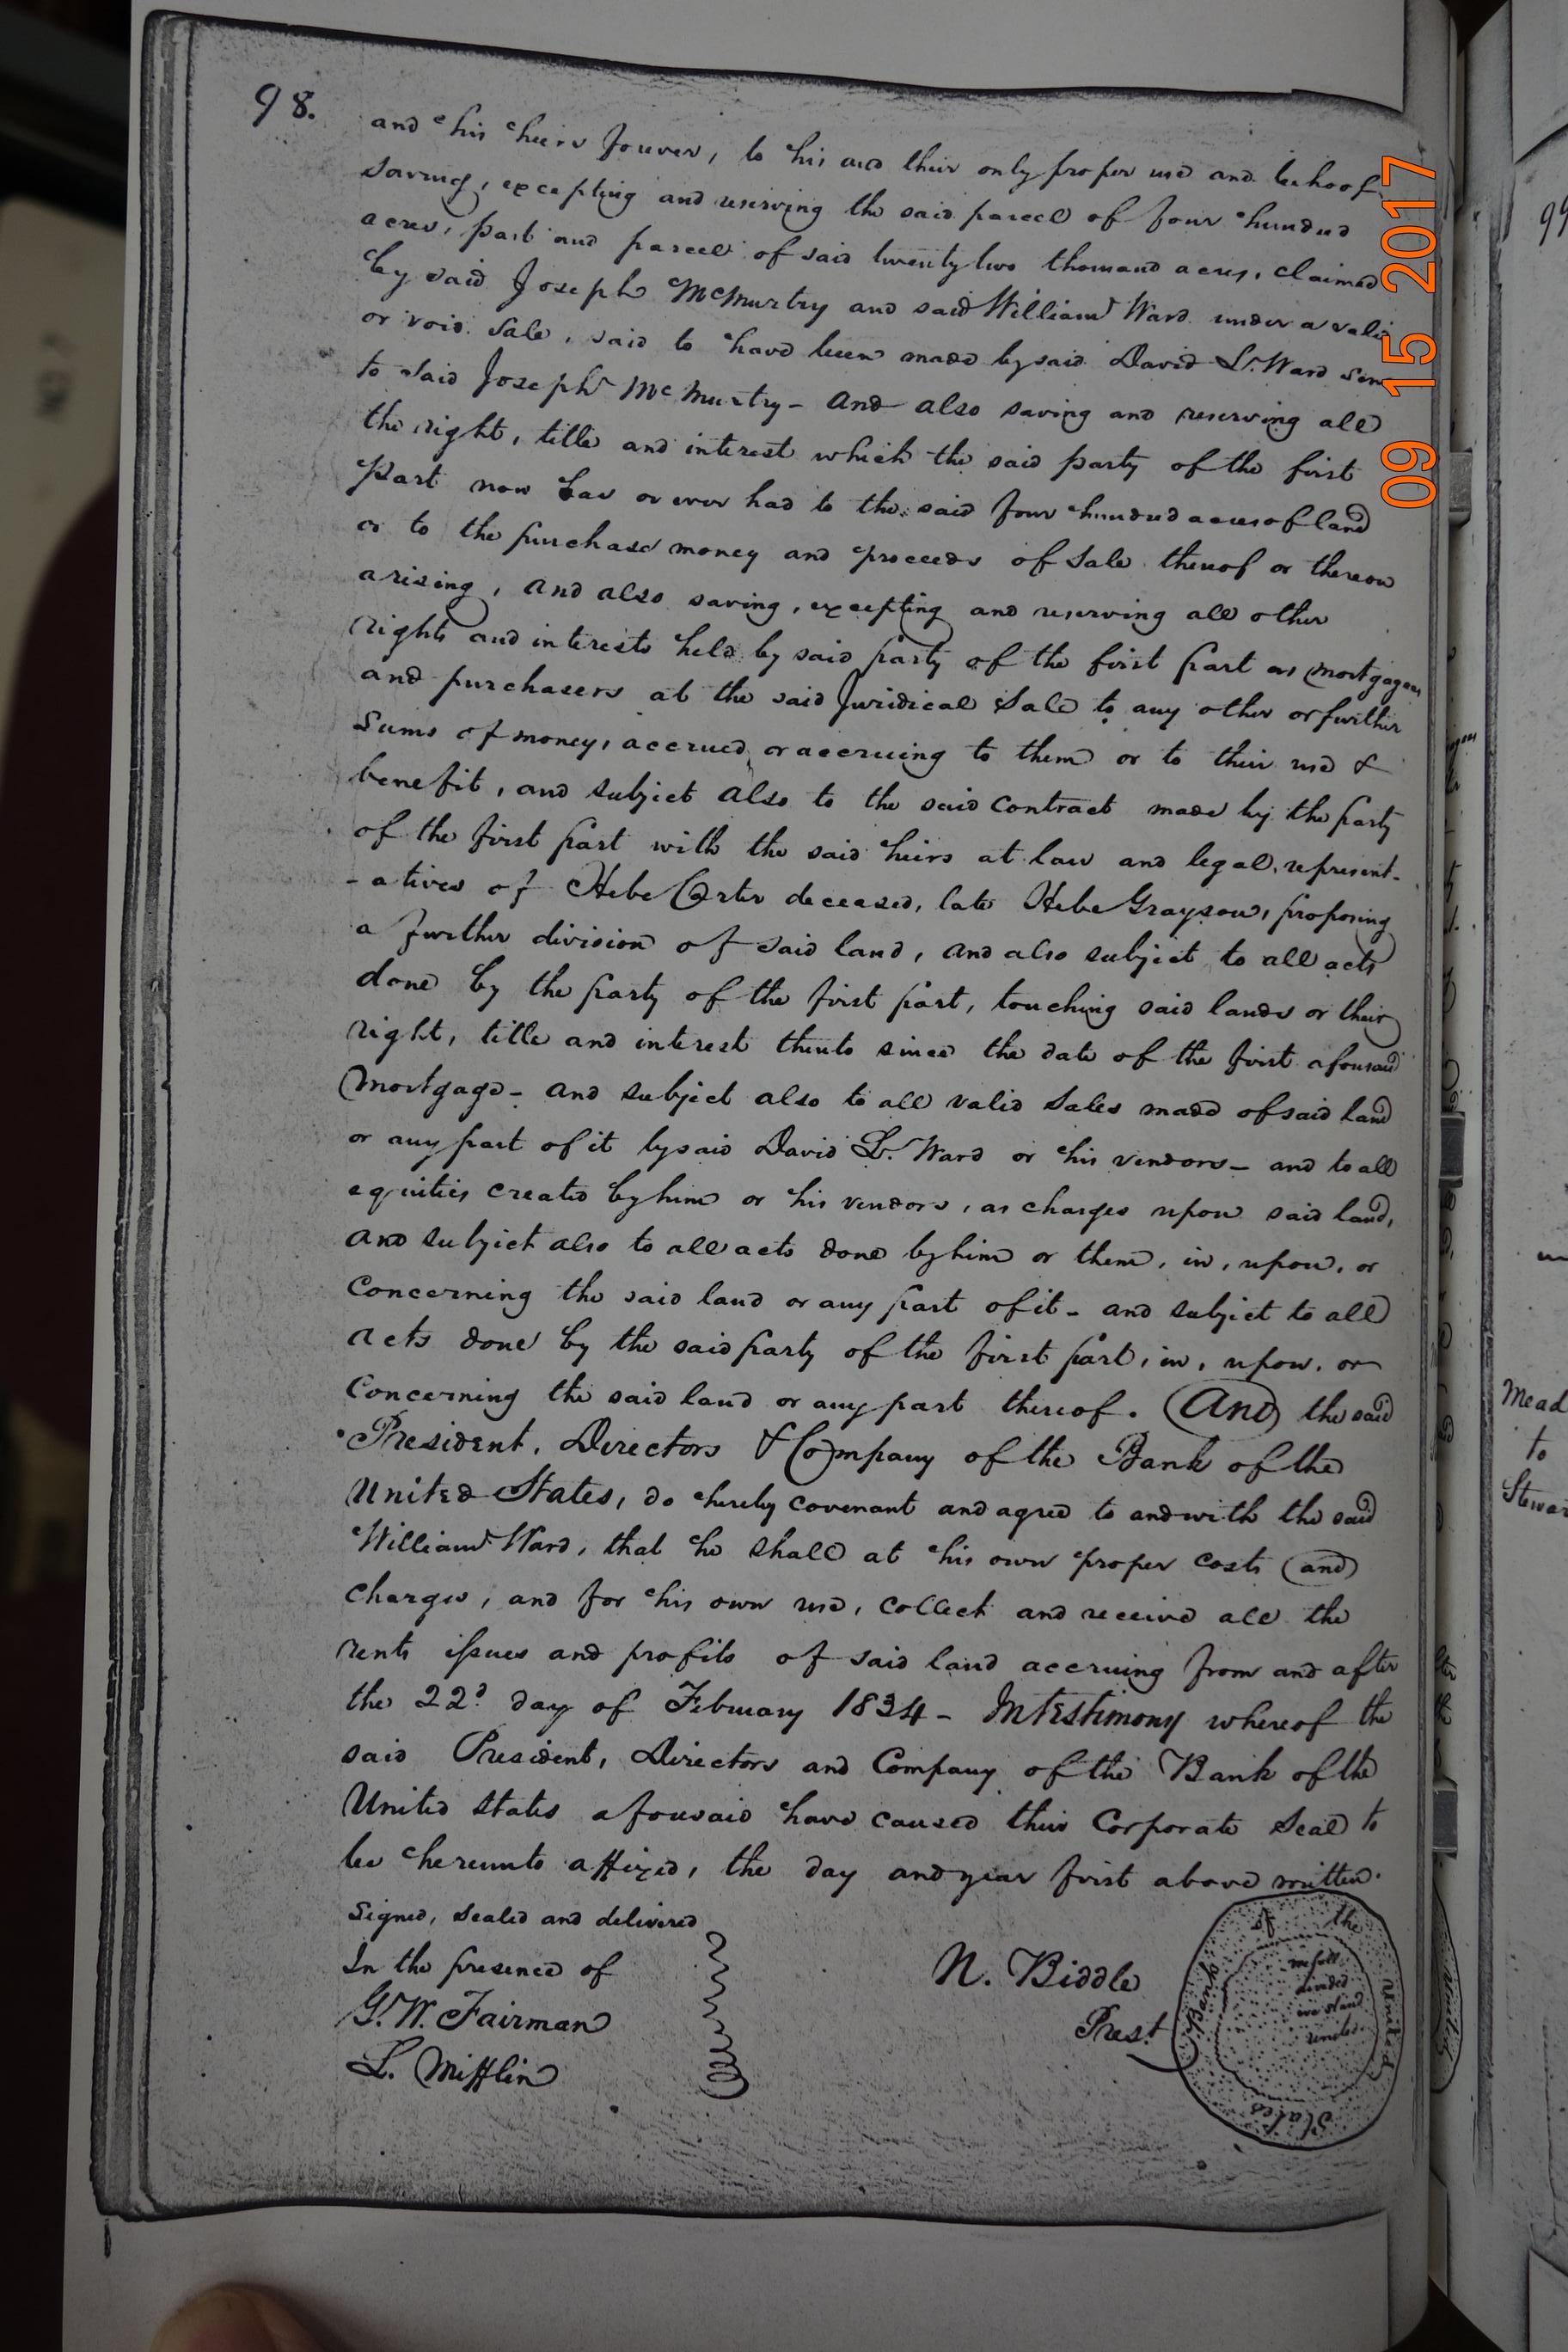 98.
and his heirs forever, to his and their only proper use and behoof
saving, excepting and reserving the said parcel of four hundred
acres, part and parcel of said twenty two thousand acres, claimed
by said Joseph McMurtry and said William Ward under a valid
or void sale, said to have been made by said David L. Ward Sen
to said Joseph McMurtry - and also saving and reserving all
the right, title and interest which the said party of the first
part now has or ever had to the said four hundred acres of land
or to the purchase money and proceeds of sale thereof or thereon
arising, and also saving, excepting and reserving all other
rights and interests held by said party of the first part as mortgagees
and purchasers at the said Juridical Sale to any other or further
sums of money, accrued or accruing to them or to their use &
benefit, and subject also to the said contract made by the party
of the first part with the said heirs at law and legal, represent-
-atives of Hebe Carter deceased, late Hebe Grayson, proposing
a further division of said land, and also subject to all acts
done by the party of the first part, touching said lands or their
right, title and interest thereto since the date of the first aforesaid
Mortgage - and subject also to all valid Sales made of said land
or any part of it by said David L. Ward or his vendors - and to all
equities created by him or his vendors, as charges upon said land,
and subject also to all acts done by him or them, in, upon, or
Concerning the said land or any part of it - and subject to all
acts done by the said party of the first part, in, upon, or
Concerning the said land or any part thereof. And the said
President, Directors & Company of the Bank of the
United States, do hereby covenant and agree to and with the said
William Ward, that he shall at his own proper costs and
charges, and for his own use, collect and receive all the
rents issues and profits of said land accruing from and after
the 22d day of February 1834 - In testimony whereof the
said President, Directors and Company of the Bank of the
United States aforesaid have caused their Corporate Seal to
be hereunto affixed, the day and year first above written.
Signed, sealed and delivered
In the presence of
G. W. Fairman
L. Mifflin
N. Biddle
Prest
Bank of the United States
divided
we stand
09 15 2017
99
Mead
to
Stewar